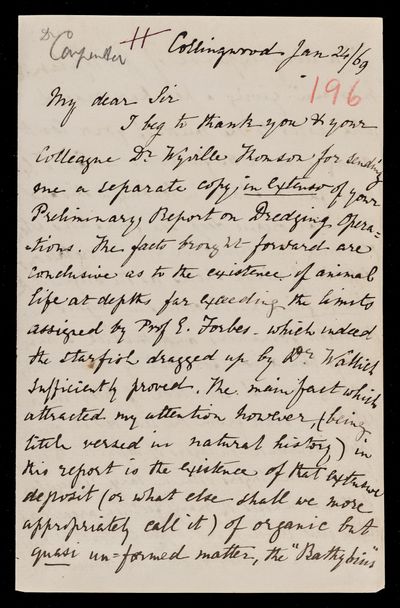 Dr Carpenter
H
Collingwood Jan 24/69
196
My dear Sir
I beg to thank you & your
Colleague Dr. Wyville Thomson for sending
me a separate copy, in extenso of your
Preliminary Report on Dredging Opera=
=tions. The facts brought forward are
conclusive as to the existence of animal
life at depths far exceeding the limits
assigned by Prof E. Forbes - which indeed
the starfish dragged up by Dr. Wallich
sufficiently proved. The main fact which
attracted my attention however, (being
little versed in natural history) in
this report is the existence of that extensive
deposit (or what else shall we more
appropriately call it) of organic but
quasi un=formed matter, the "Bathybius"